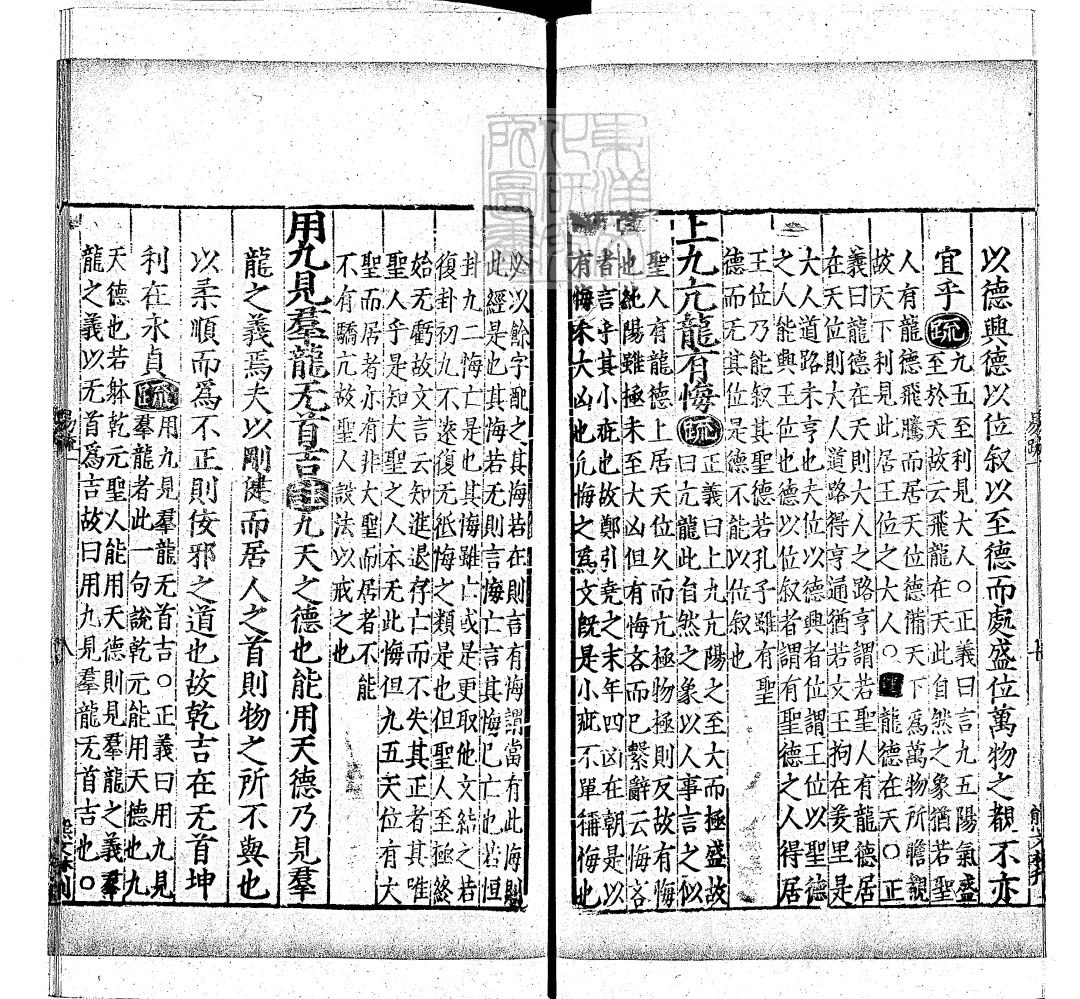 以德興德以位叙以至德而處盛位萬物之覩不亦
宜乎疏九五至利見大人○正義曰言九五陽氣盛
至於天故云飛龍在天此自然之象猶若聖
人有龍德飛騰而居天位德備天下爲萬物所瞻覩
故天下利見此居王位之大人○注龍德在天○正
義曰龍德在天則大人之路亨謂若聖人有龍德居
在天位則大人道路得亨通猶若文王拘在羑里是
大人道路未亨也夫位以德興者位謂王位以聖德
之人能興王位也德以位叙者謂有聖德之人得居
王位乃能叙其聖德若孔子雖有聖
德而无其位是德不能以位叙也
上九亢龍有悔疏正義曰上九亢陽之至大而極盛故
曰亢龍此自然之象以人事言之似
聖人有龍德上居天位久而亢極物極則反故有悔
也純陽雖極未至大凶但有悔吝而已繫辭云悔吝
者言乎其小疵也故鄭引堯之末年四凶在朝是以
有悔未大凶也凡悔之爲文旣是小疵不單稱悔也
必以餘字配之其悔若在則言有悔謂當有此悔則
此經是也其悔若无則言悔亡言其悔已亡也若恒
卦九二悔亡是也其悔雖亡或是更取他文結之若
復卦初九不遠復无祗悔之類是也但聖人至極終
始无虧故文言云知進退存亡而不失其正者其唯
聖人乎是知大聖之人本无此悔但九五天位有大
聖而居者亦有非大聖而居者不能
不有驕亢故聖人設法以戒之也
用九見羣龍无首吉註九天之德也能用天德乃見羣
龍之義焉夫以剛健而居人之首則物之所不與也
以柔順而爲不正則佞邪之道也故乾吉在无首坤
利在永貞疏用九見羣龍无首吉○正義曰用九見
羣龍者此一句說乾元能用天德也九
天德也若躰乾元聖人能用天德則見羣龍之義羣
龍之義以无首爲吉故曰用九見羣龍无首吉也○
八